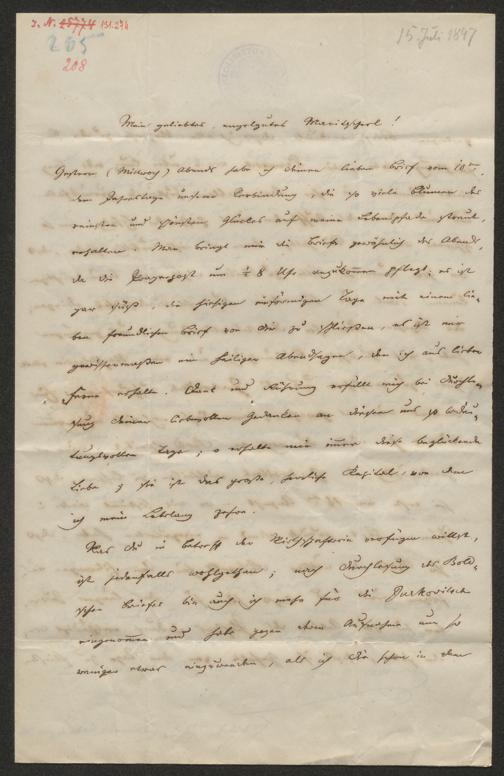 I. N. 25774 131.274
205
208
15. Juli 1847
Mein geliebtes, engelgutes Marietscherl!
Gestern (Mittwoch) Abends habe ich deinen lieben Brief vom 10ten,
dem Jahrestage unserer Verbindung, die so viele Blumen des
reinsten und schönsten Glückes auf meine Lebenspfade streut,
erhalten. Man bringt mir die Briefe gewöhnlich des Abends,
da die Pragerpost um ½ 8 Uhr anzukommen pflegt; es ist
gar süß, die hiesigen einförmigen Tage mit einem lie-
ben freundlichen Brief von dir zu schließen, es ist mir
gewissermaßen ein heiliger Abendsegen, den ich aus lieber
Ferne erhalte. Dank und Rührung erfüllt mich bei Durchle-
sung deiner liebevollen Gedanken an diesem uns so bedeu-
tungsvollen Tage; o erhalte mir immer diese beglückende
Liebe; sie ist das große, herrliche Kapital, von dem
ich mein Lebelang zehre.
Was du in betreff der Wirthschafterin verfügen willst,
ist jedenfalls wohlgethan; nach Durchlesung des
schen Briefes bin auch ich mehr für die Jurkovitsch
eingenommen und habe gegen deren Aufnahme um so
weniger etwas einzuwenden, als ich dir schon in dem